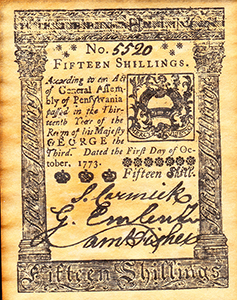 No. 5520
FIFTEEN SHILLINGS.
According to an Act
of General Assem-
bly of Pensylvania
passed in the Thir-
teenth Year of the
Reign of his Majesty
GEORGE the
Third. Dated the First Day of Oc-
tober, 1773.
Fifteen Shill.
Fifteen Shillings